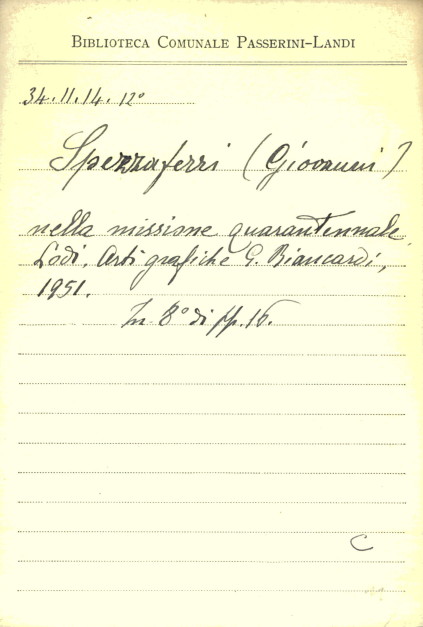 BIBLIOTECA COMUNALE PASSERINI-LANDI
34.11.14.12º
Spezzaferri (Giovanni)
nella missione quarantennale.
Lodi. Arti grafiche G. Biancardi,
1951.
In 8º di pp. 16.
C